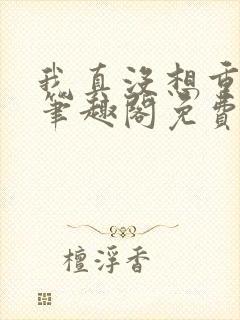 我真没想重
笔趣阁免费
檀浮香